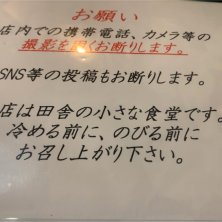 お願い
店内での携帯電話、カメラ等の
撮影を固くお断りします。
SNS等の投稿もお断りします。
店は田舎の小さな食堂です。
冷める前に、のびる前に
お召し上がり下さい。